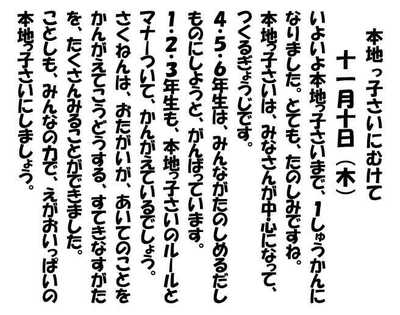 本地っ子さいにむけて
十一月十日（木）
いよいよ本地っ子さいまで、１しゅうかんに
なりました。とても、たのしみですね。
本地っ子さいは、みなさんが中心になって、
つくるぎょうじです。
４・５・６年生は、みんながたのしめるだし
ものにしようと、がんばっています。
１・２・３年生も、本地っ子さいのルールと
マナーついて、かんがえているでしょう。
さくねんは、おたがいが、あいてのことを
かんがえてこうどうする、すてきなすがた
を、たくさんみることができました。
ことしも、みんなの力で、えがおいっぱいの
本地っ子さいにしましょう。